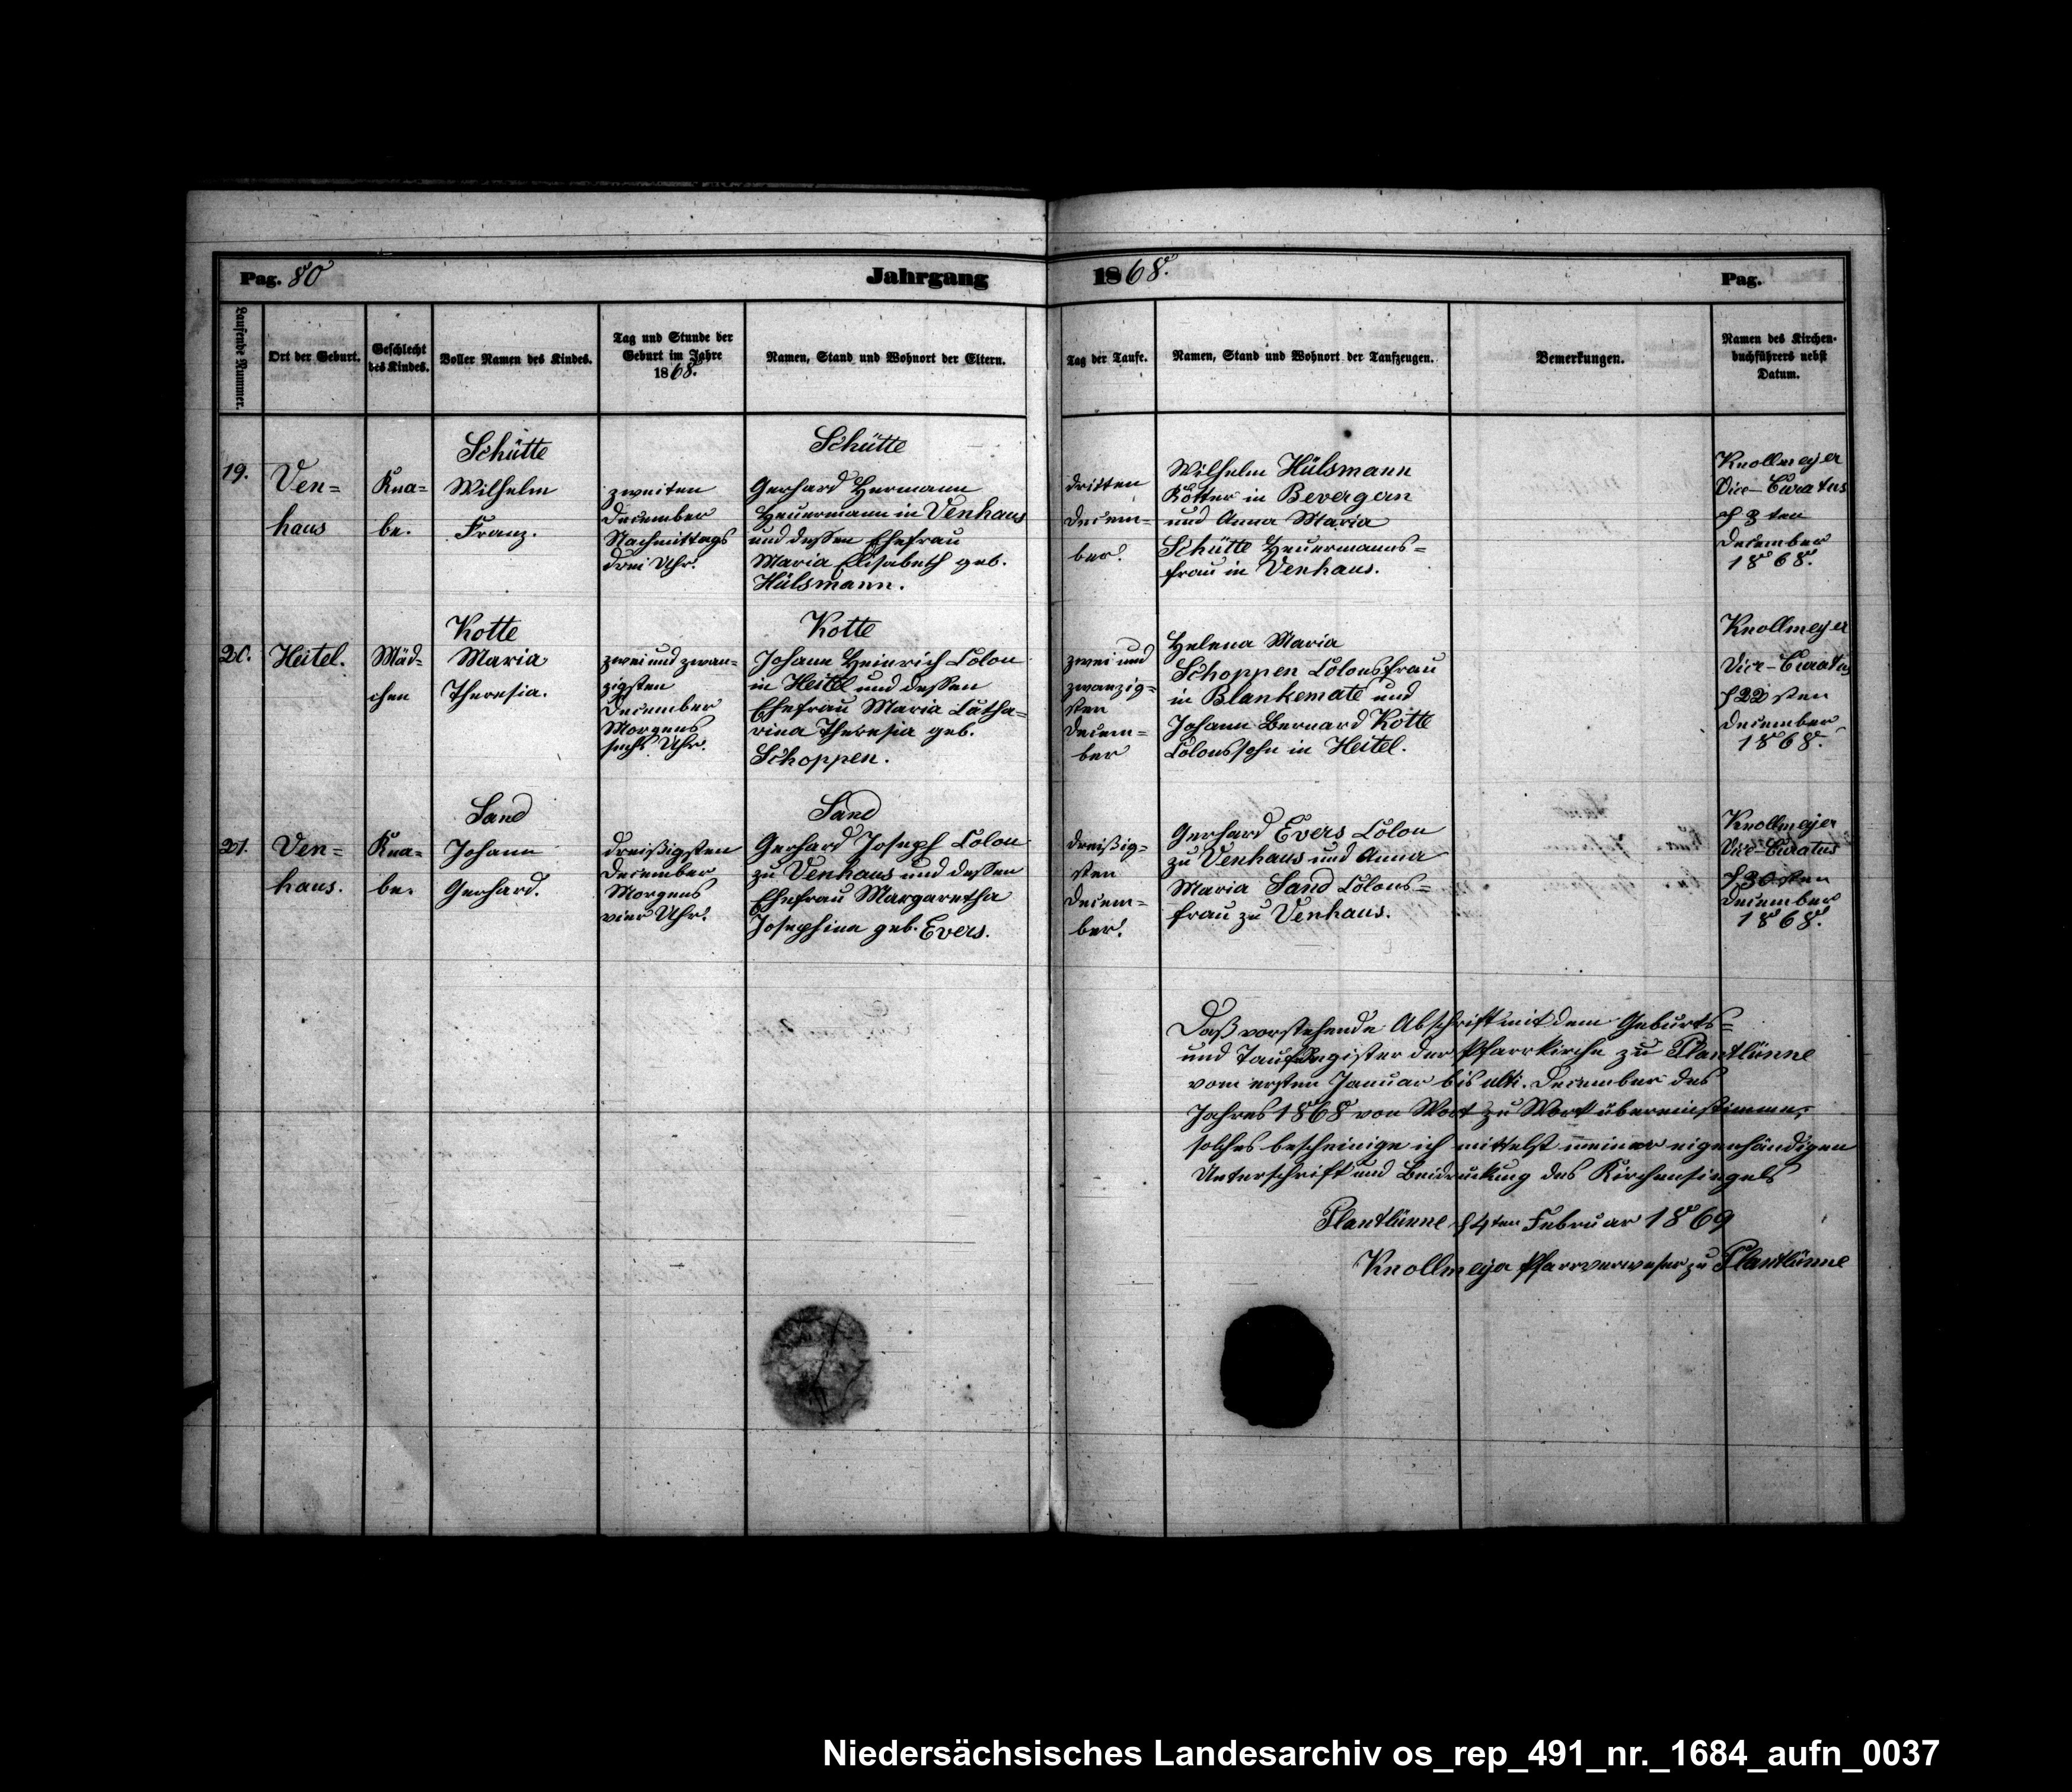 Pag. 80
Jahrgang
1868.
Pag.
Laufende Nummer.
Ort der Geburt.
Geschlecht
des Kindes.
Voller Namen des Kindes.
Tag und Stunde der
Geburt im Jahre
1868.
Namen, Stand und Wohnort der Eltern.
Tag der Taufe.
Namen, Stand und Wohnort der Taufzeugen.
Bemerkungen.
Namen des Kirchen-
buchführers nebst
Datum.
19.
Ven=
haus
Kna=
be.
Schütte
Wilhelm
Franz.
zweiten
December
Nachmittags
drei Uhr.
Schütte
Gerhard Hermann
Heuermann in Venhaus
und dessen Ehefrau
Maria Elisabeth geb.
Hülsmann.
dritten
Decem=
ber.
Wilhelm Hülsmann
Kötter in Bevergern
und Anna Maria
Schütte Heuermanns=
frau in Venhaus.
Knollmeyer
Vice-Curatus
d 3ten
December
1868.
20.
Heitel.
Mäd=
chen
Kotte
Maria
Theresia.
zwei und zwan=
zigsten
December
Morgens
sechs Uhr.
Kotte
Johann Heinrich Colon
in Heitel und dessen
Ehefrau Maria Catha=
rina Theresia geb.
Schoppen.
zwei und
zwanzig=
sten
Decem=
ber
Helena Maria
Schoppen Colonsfrau
in Blankemate und
Johann Bernard Kotte
Colonssohn in Heitel.
Knollmeyer
Vice-Curatus
d 22sten
December
1868.
21.
Ven=
haus.
Kna=
be.
Sand
Johann
Gerhard.
dreißigsten
December
Morgens
vier Uhr.
Sand
Gerhard Joseph Colon
zu Venhaus und dessen
Ehefrau Margaretha
Josephina geb. Evers.
dreißig=
sten
Decem=
ber.
Gerhard Evers Colon
zu Venhaus und Anna
Maria Sand Colons=
frau zu Venhaus.
Knollmeyer
Vice-Curatus
d 30sten
December
1868.
Daß vorstehende Abschrift mit dem Geburts=
und Taufregister der Pfarrkirche zu Plantlünne
vom ersten Januar bis ult. December des
Jahres 1868 von Wort zu Wort übereinstimme,
solches bescheinige ich mittelst meiner eigenhändigen
Unterschrift und Beidruckung des Kirchensiegels
Plantlünne d 4ten Februar 1869
Knollmeyer Pfarrverweser zu Plantlünne
Niedersächsisches Landesarchiv os_rep_491_nr._1684_aufn_0037